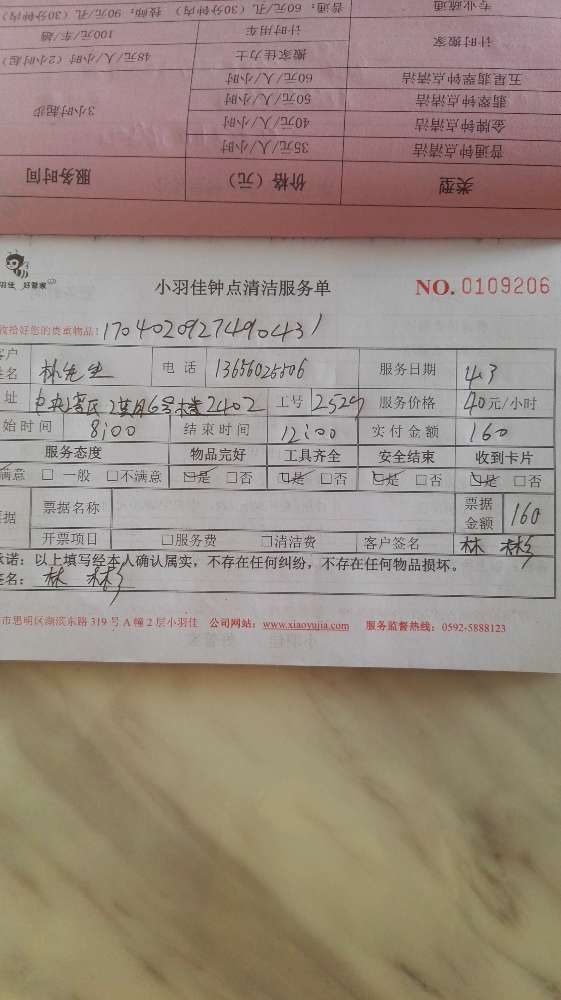 专业疏通 普通：60元/孔（30分钟内） 技师：90元/孔（30分钟内）
计时用车 100元/车/趟
计时搬家 搬家佳力士 48元/人/小时（2小时起）
五星翡翠钟点清洁 60元/人/小时
翡翠钟点清洁 50元/人/小时 3小时起步
金牌钟点清洁 40元/人/小时
普通钟点清洁 35元/人/小时
类型 价格（元） 服务时间
羽佳 好管家
小羽佳钟点清洁服务单 NO. 0109206
收拾好您的贵重物品: 1704020927490431
客户姓名 林先生 电话 13656025506 服务日期 4.3
址 2402 工号 2529 服务价格 40元/小时
始时间 8:00 结束时间 12:00 实付金额 160
服务态度 物品完好 工具齐全 安全结束 收到卡片
满意 □ 一般 □不满意 □是 □否 □是 □否 □是 □否 □是 □否
据 票据名称 票据金额 160
开票项目 □服务费 □清洁费 客户签名 林
承诺: 以上填写经本人确认属实，不存在任何纠纷，不存在任何物品损坏。
签名: 林
市思明区湖滨东路 319 号 A 幢 2 层小羽佳 公司网站: www.xiaoyujia.com 服务监督热线: 0592-5888123